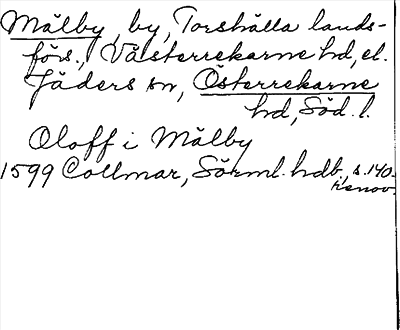 Mälby, by, Torshälla lands-
förs., Västerrekarne hd, el.
Jäders sn, Österrekarne
hd, Söd. l.
Oloff i Mälby
1599 Collmar, Sörml. hdb, s. 140.
renov.